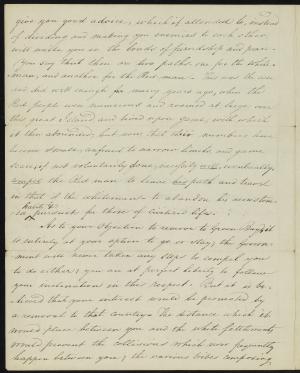 give you good advice, which if attended to, instead
of dividing and making you enemies to each other,
will unite you in the bonds of friendship and peace.
You say that there are two paths, one for the white
man, and another for the Red man. This was the case
and did well enough for many years ago, when the
Red people were numerous and roamed at large over
this great Island and lived upon game, with which
it then abounded, but now that their numbers have
become few, confined to narrow limits, and game
scarce, if not voluntarily done, necessity will, eventually,
compel the Red man to leave his path and travel
in that of the whiteman - to abandon his
habits & pursuits for those of civilized life.
As to your Objection to remove to Green Bay, it
is entirely at your option to go or stay; the Govern-
ment will never take any steps to compel you
to do either; you are at perfect liberty to follow
your inclination in this respect. But it is be-
lieved that your interest would be promoted by
a removal to that country. The distance which it
would place between you and the white settlements
would prevent the collisions which now frequently
happen between you; the various tribes composing